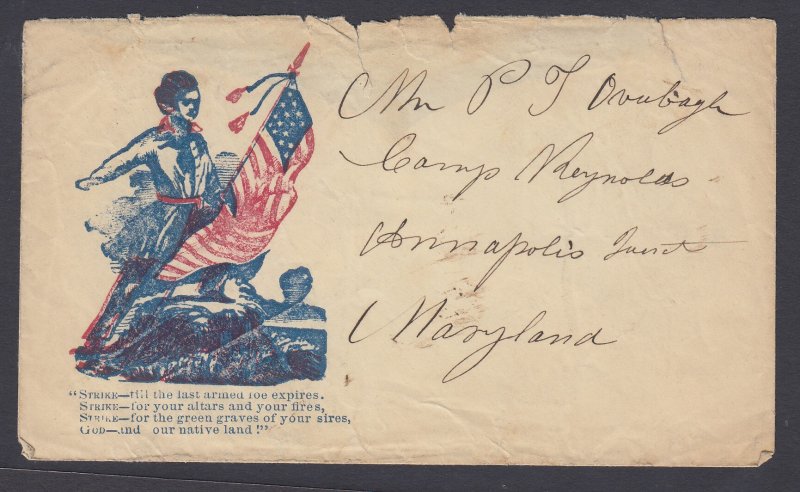 "STRIKE—till the last armed foe expires.
STRIKE—for your altars and your fires,
STRIKE—for the green graves of your sires,
GOD—and our native land!"
Mr P T
Camp Reynolds
Annapolis Junct
Maryland